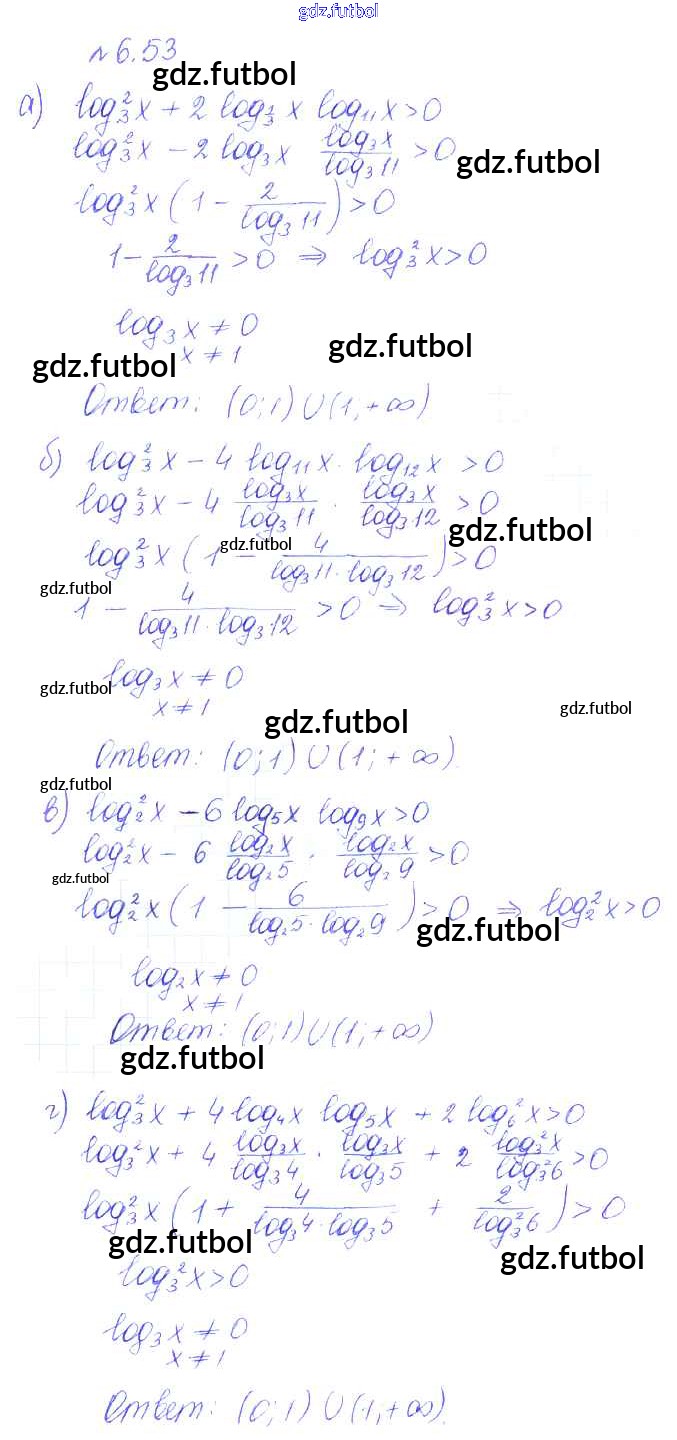 gdz.futbol
№6.53
gdz.futbol
а) log₃²x + 2 log_{1/3} x log₁₁x > 0
log₃²x − 2 log₃x log₃x/log₃11 > 0
gdz.futbol
log₃²x (1 − 2/log₃11) > 0
1 − 2/log₃11 > 0 ⇒ log₃²x > 0
log₃x ≠ 0
gdz.futbol
x ≠ 1
gdz.futbol
Ответ: (0;1)∪(1;+∞)
б) log₃²x − 4 log₁₁x · log₁₂x > 0
log₃²x − 4 log₃x/log₃11 · log₃x/log₃12 > 0
gdz.futbol
log₃²x (1 − 4/(log₃11·log₃12)) > 0
gdz.futbol
gdz.futbol
1 − 4/(log₃11·log₃12) > 0 ⇒ log₃²x > 0
log₃x ≠ 0
gdz.futbol
x ≠ 1
gdz.futbol
gdz.futbol
Ответ: (0;1)∪(1;+∞).
gdz.futbol
в) log₂²x − 6 log₅x log₉x > 0
log₂²x − 6 log₂x/log₂5 · log₂x/log₂9 > 0
gdz.futbol
log₂²x (1 − 6/(log₂5·log₂9)) > 0 ⇒ log₂²x > 0
gdz.futbol
log₂x ≠ 0
x ≠ 1
Ответ: (0;1)∪(1;+∞)
gdz.futbol
г) log₃²x + 4 log₄x log₅x + 2 log₆²x > 0
log₃²x + 4 log₃x/log₃4 · log₃x/log₃5 + 2 log₃²x/log₃²6 > 0
log₃²x (1 + 4/(log₃4·log₃5) + 2/log₃²6) > 0
gdz.futbol
gdz.futbol
log₃²x > 0
log₃x ≠ 0
x ≠ 1
Ответ: (0;1)∪(1;+∞).